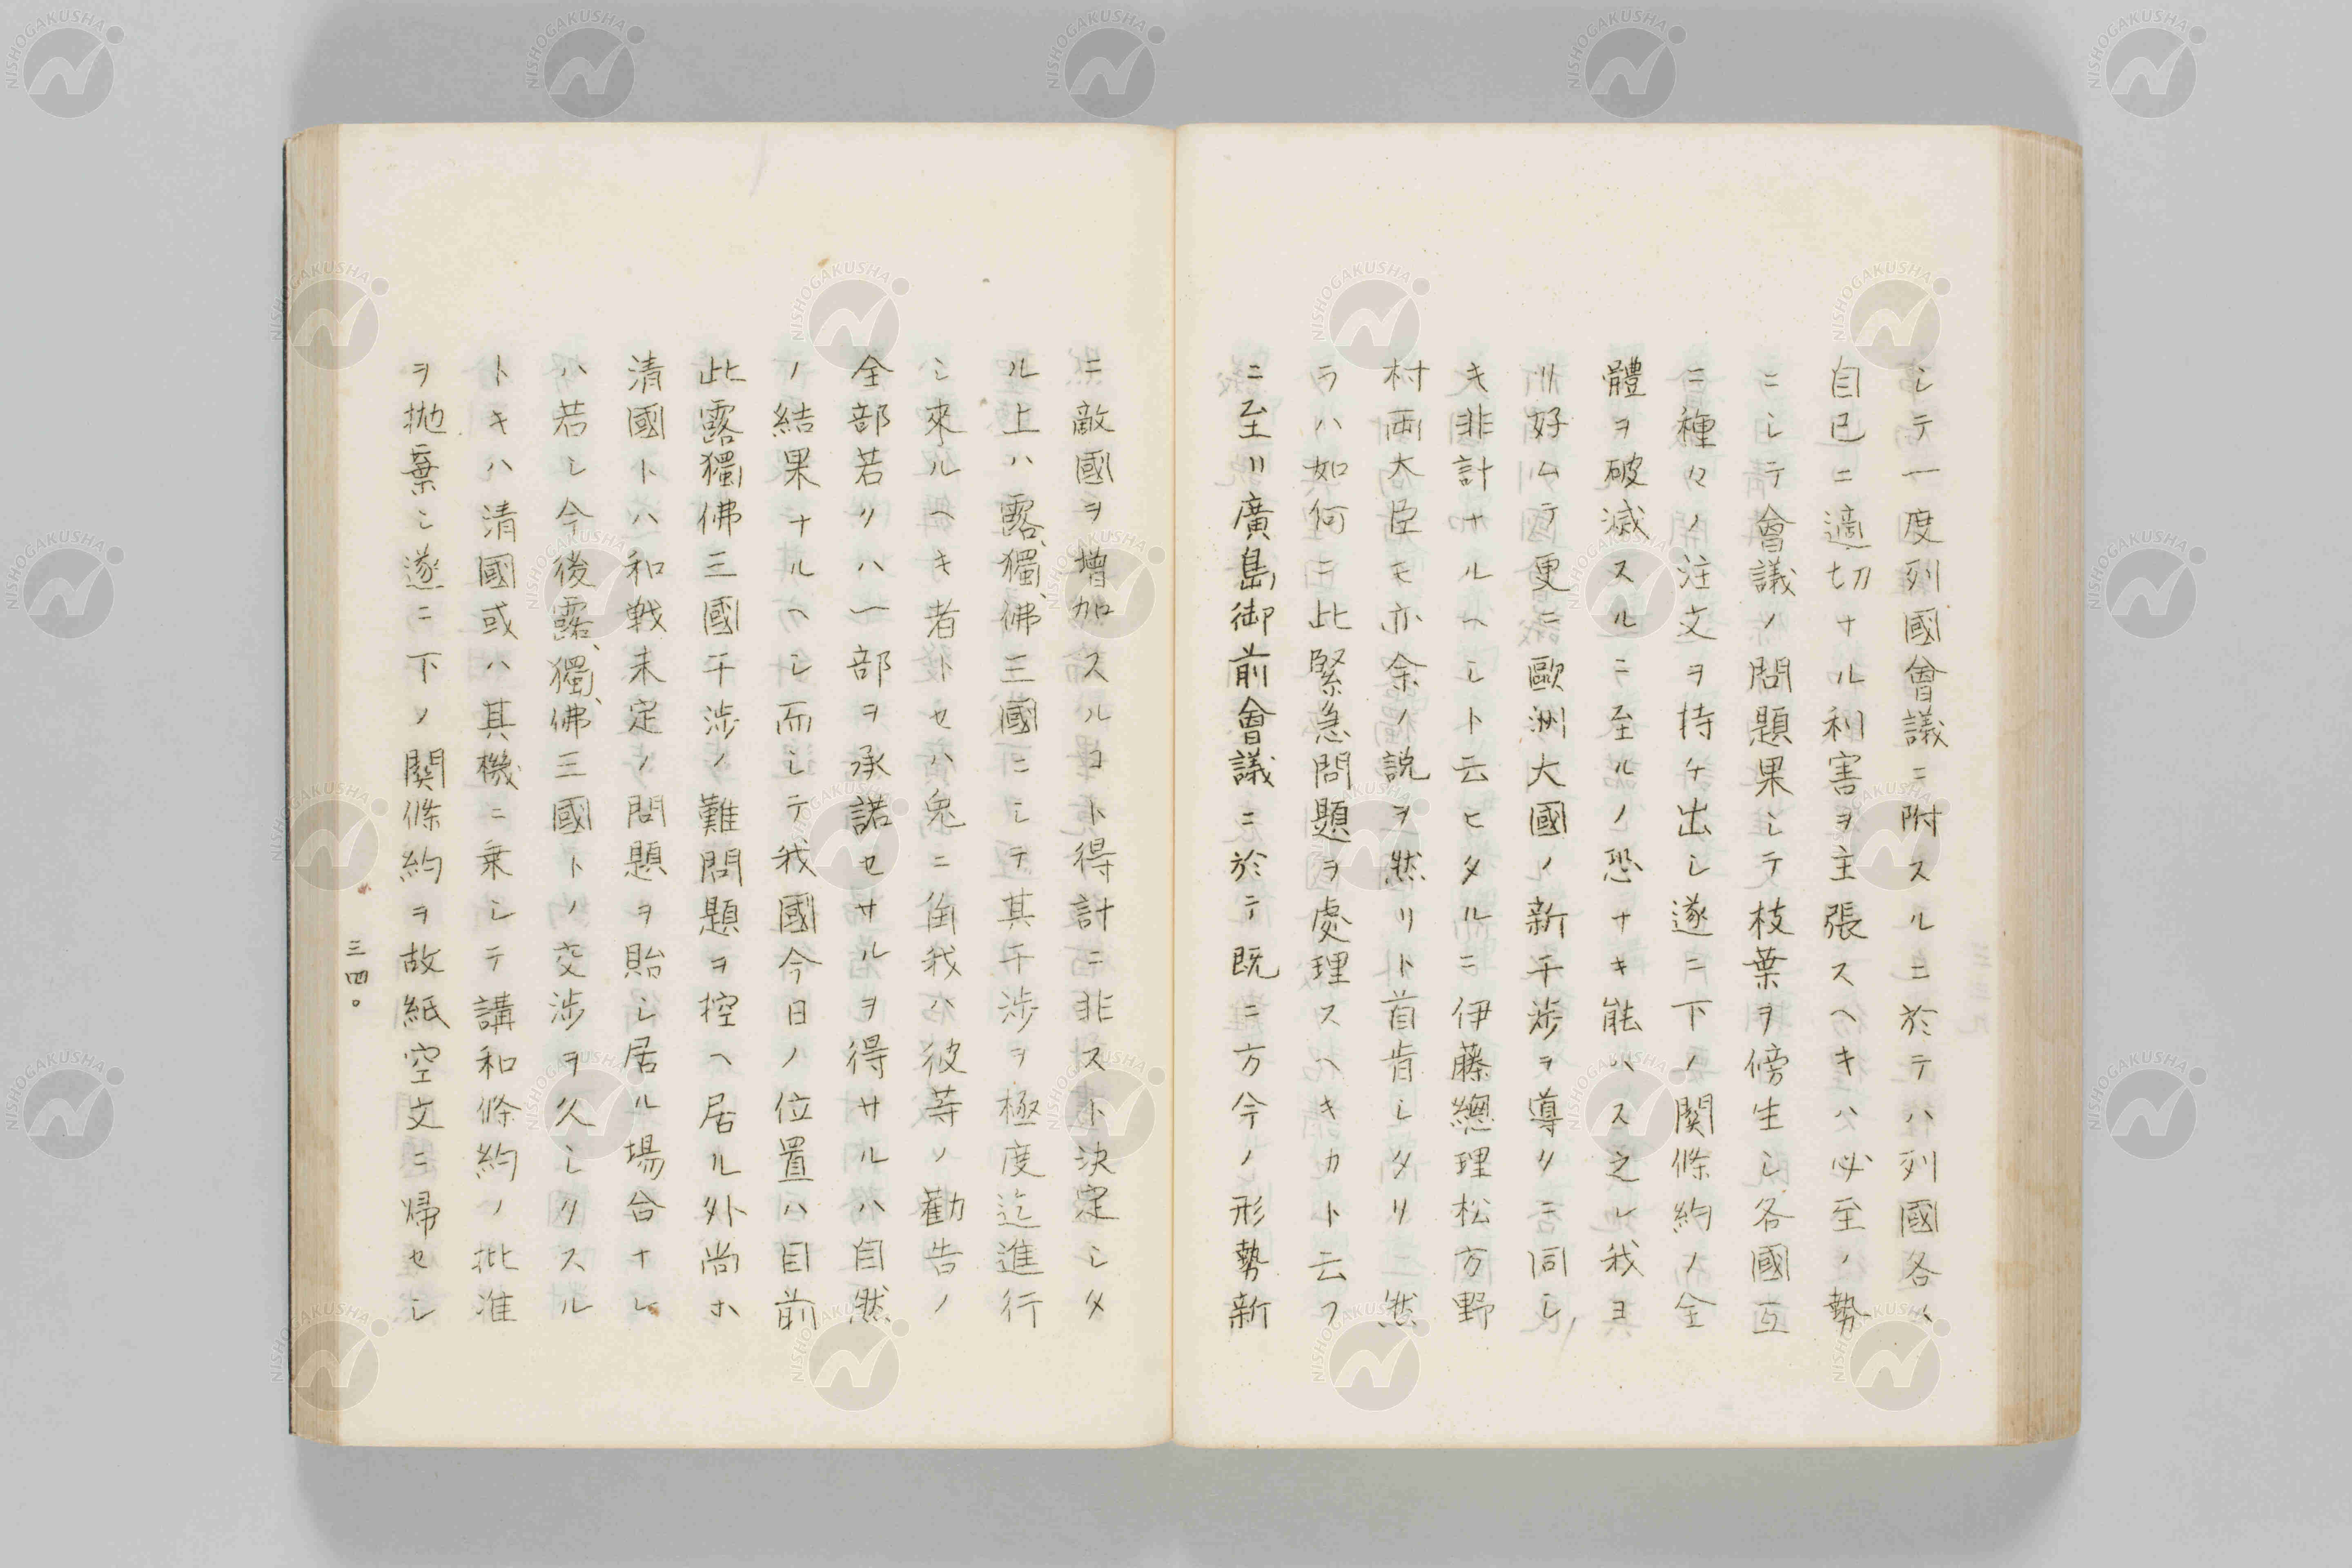 シテ一度列國會議ニ附スルニ於テハ列國各〻
自己ニ適切ナル利害ヲ主張スヘキハ必至ノ勢
ニシテ會議ノ問題果シテ枝葉ヲ傍生シ各國互
ニ種々ノ注文ヲ持チ出シ遂ニ下ノ關條約ノ全
體ヲ破滅スルニ至ルノ恐ナキ能ハス之レ我ヨ
リ好ムテ更ニ歐洲大國ノ新干渉ヲ導クニ同シ
キ非計ナルヘシト云ヒタルニ伊藤總理松方野
村両大臣モ亦余ノ説ヲ然リト首肯シタリ然
ラハ如何ニ此緊急問題ヲ處理スヘキカト云フ
ニ至リ廣島御前會議ニ於テ既ニ方今ノ形勢新
ニ敵國ヲ増加スルコト得計ニ非スト決定シタ
ル上ハ露、獨、佛三國ニシテ其干渉ヲ極度迄進行
シ來ルヘキ者トセハ兎ニ角我ハ彼等ノ勸告ノ
全部若クハ一部ヲ承諾セサルヲ得サルハ自然
ノ結果ナルヘシ而シテ我國今日ノ位置ハ目前
此露獨佛三國干渉ノ難問題ヲ控ヘ居ル外尚ホ
清國トハ和戦未定ノ問題ヲ貽シ居ル場合ナレ
ハ若シ今後露、獨、佛三國トノ交渉ヲ久シクスル
トキハ清國或ハ其機ニ乗シテ講和條約ノ批准
ヲ拋棄シ遂ニ下ノ關條約ヲ故紙空文ニ帰セシ
三四。
NISHOGAKUSHA